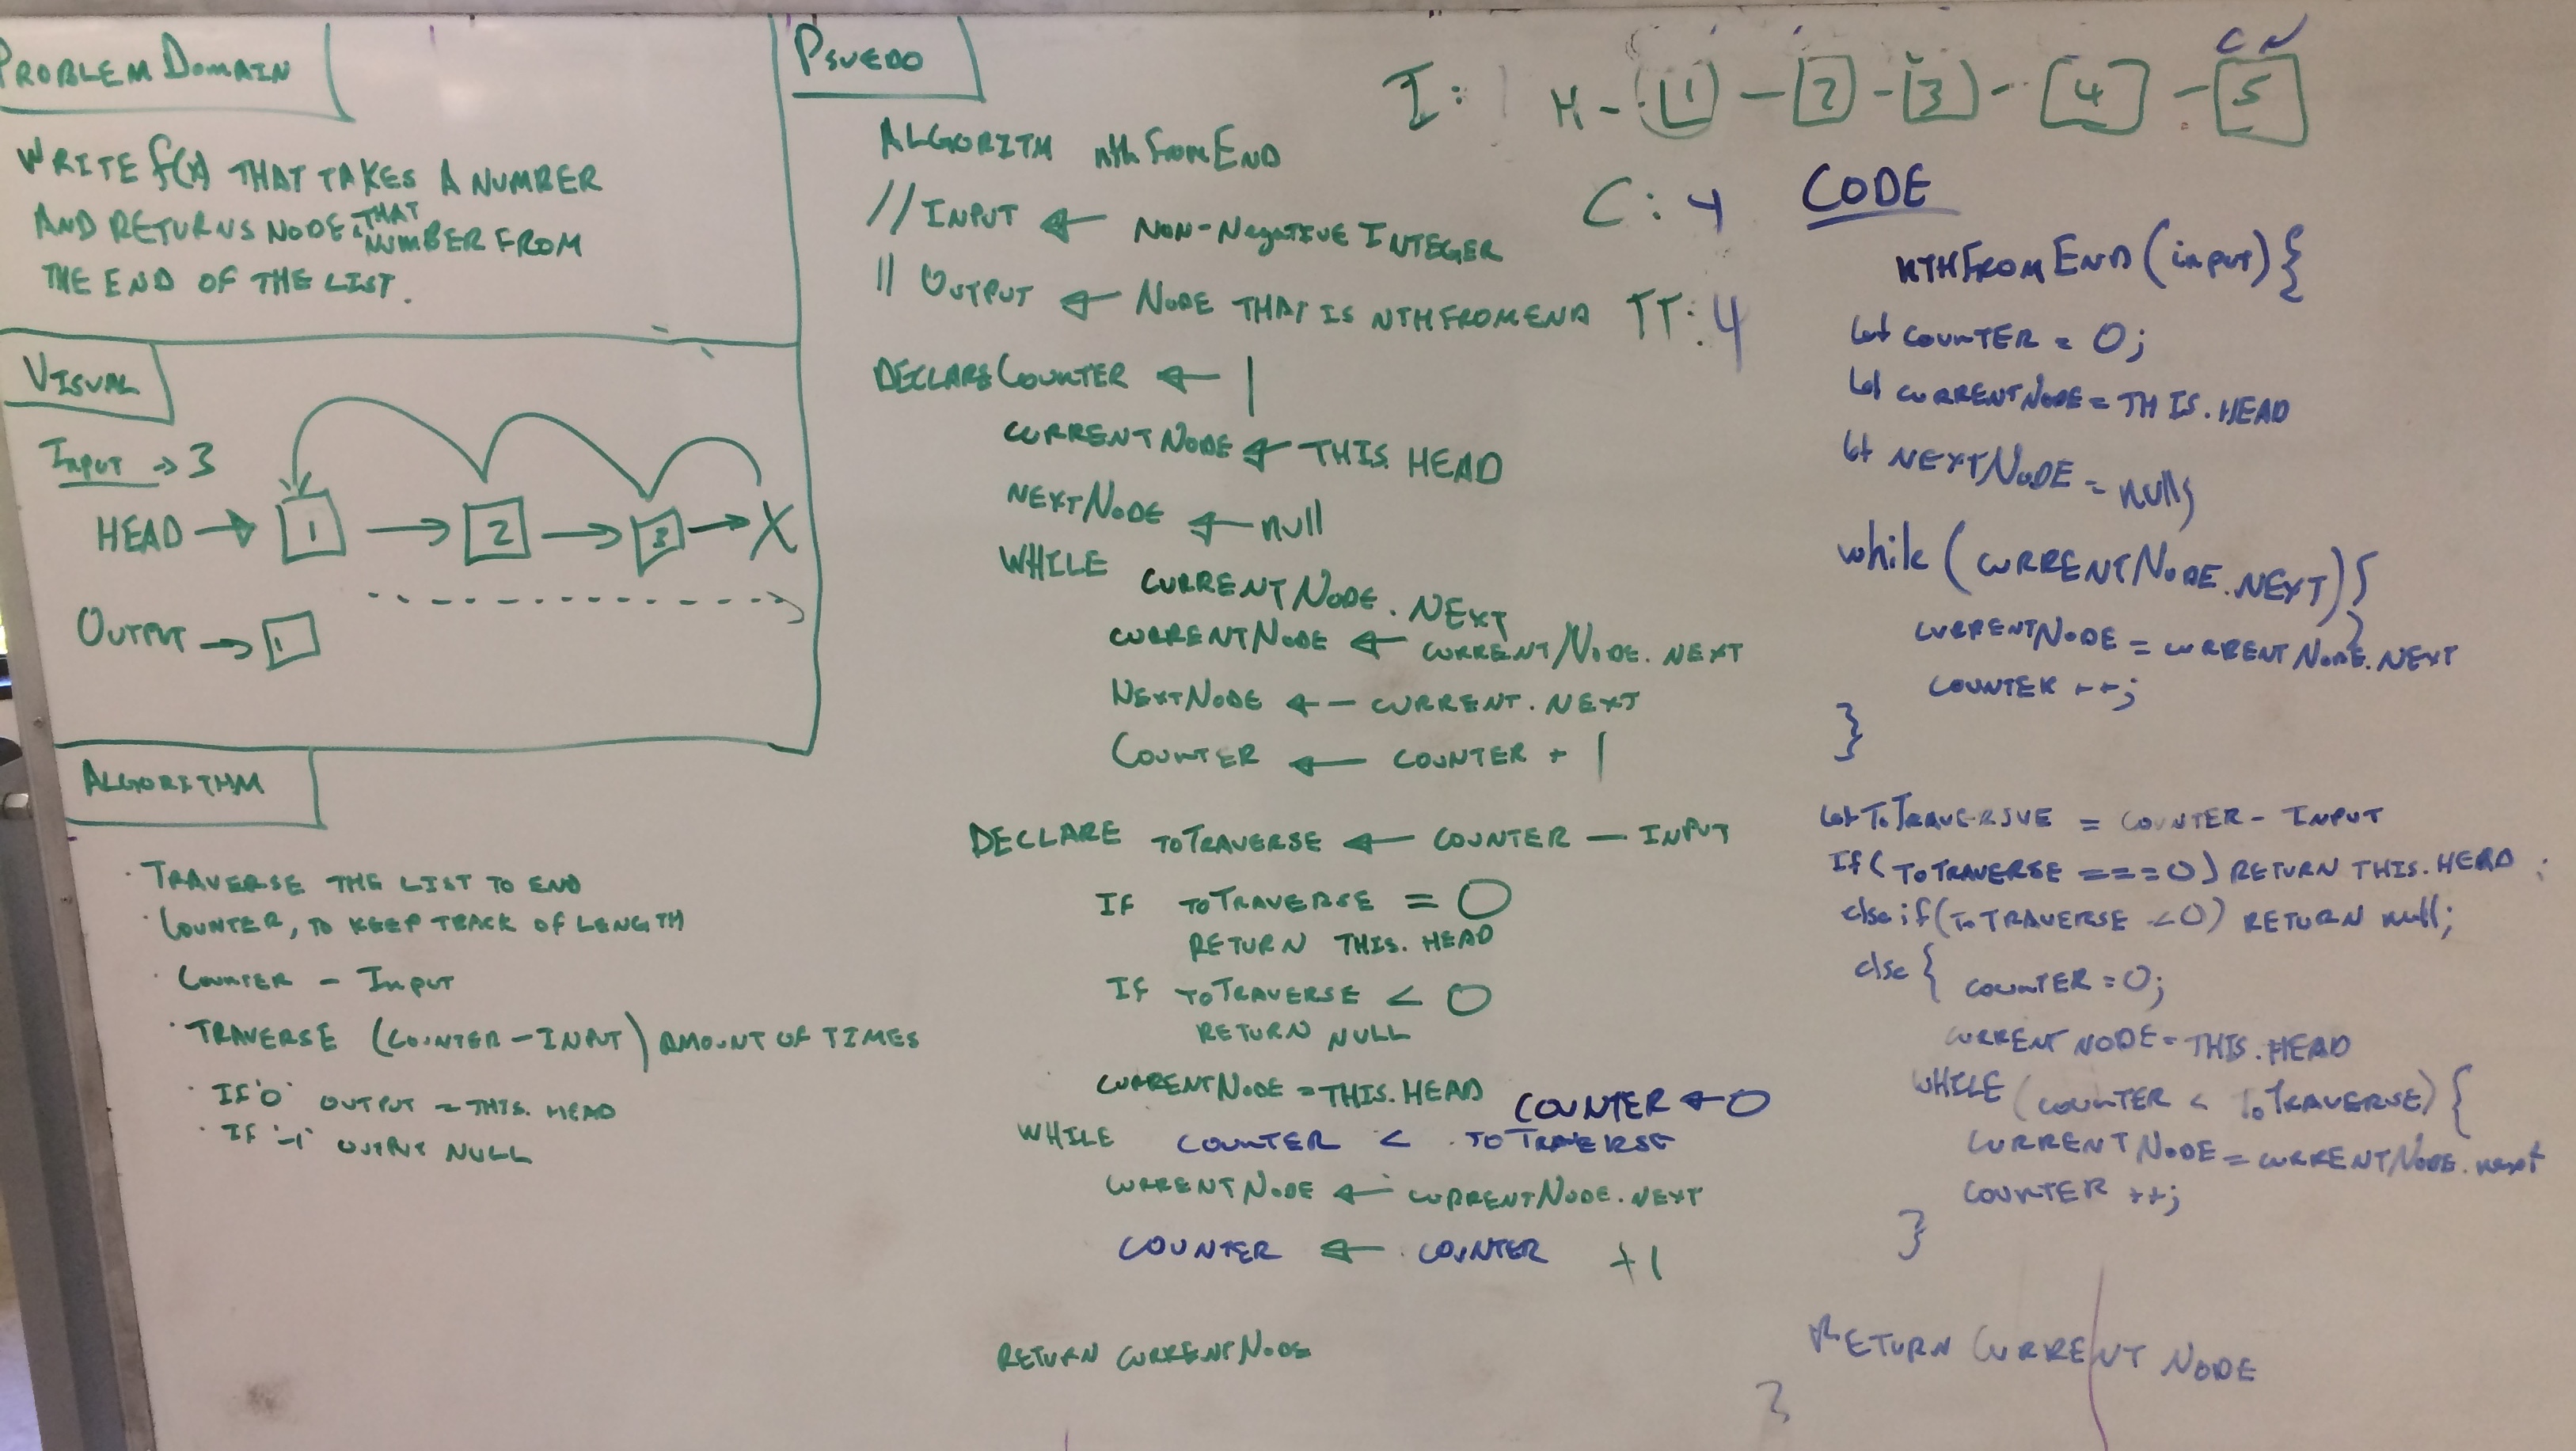 PROBLEM DOMAIN
WRITE f(x) THAT TAKES A NUMBER
AND RETURNS NODE THAT
NUMBER FROM
THE END OF THE LIST.
VISUAL
INPUT → 3
HEAD → 1 → 2 → 3 → X
OUTPUT → 1
ALGORITHM
· TRAVERSE THE LIST TO END
· COUNTER, TO KEEP TRACK OF LENGTH
· COUNTER - INPUT
· TRAVERSE (COUNTER - INPUT) AMOUNT OF TIMES
· IF '0' OUTPUT = THIS. HEAD
· IF '-1' OUTPUT NULL
PSUEDO
ALGORITM nth From END
// INPUT ← NON-NegATIVE INTEGER
// OUTPUT ← NODE THAT IS NTHFROMEND
DECLARE COUNTER ← 1
CURRENTNODE ← THIS. HEAD
NEXTNODE ← null
WHILE CURRENTNODE. NEXT
CURRENTNODE ← CURRENTNODE. NEXT
NEXTNODE ← CURRENT. NEXT
COUNTER ← COUNTER + 1
DECLARE TOTRAVERSE ← COUNTER — INPUT
IF TOTRAVERSE = 0
RETURN THIS. HEAD
IF TOTRAVERSE < 0
RETURN NULL
CURRENTNODE = THIS. HEAD COUNTER ← 0
WHILE COUNTER < TOTRAVERSE
CURRENTNODE ← CURRENTNODE. NEXT
COUNTER ← COUNTER +1
RETURN CURRENTNODE
I: H - 1 - 2 - 3 - 4 - 5
C N
C: 4
TT: 4
CODE
NTHFROMEND (input) {
let COUNTER = 0;
let CURRENTNODE = THIS. HEAD
let NEXTNODE = null;
while (CURRENTNODE. NEXT) {
CURRENTNODE = CURRENTNODE. NEXT
COUNTER ++;
}
let TOTRAVERSVE = COUNTER - INPUT
If (TOTRAVERSE === 0) RETURN THIS. HEAD;
else if (TOTRAVERSE < 0) RETURN null;
else { COUNTER = 0;
CURRENT NODE = THIS. HEAD
WHILE (COUNTER < TOTRAVERSE) {
CURRENTNODE = CURRENTNODE. next
COUNTER ++;
}
RETURN CURRENT NODE
}